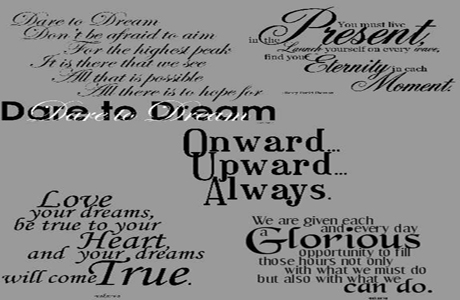 Dare to Dream
Don't be afraid to aim
For the highest peak
It is there that we see
All that is possible
All there is to hope for
Dare to Dream
Dare to Dream
You must live
in the Present,
Launch yourself on every wave,
find your Eternity in each
Moment.
Onward...
Upward...
Always.
Love
your dreams,
be true to your
Heart,
and your dreams
will come True.
We are given each
and every day
a Glorious
opportunity to fill
those hours not only
with what we must do
but also with what we
can do.